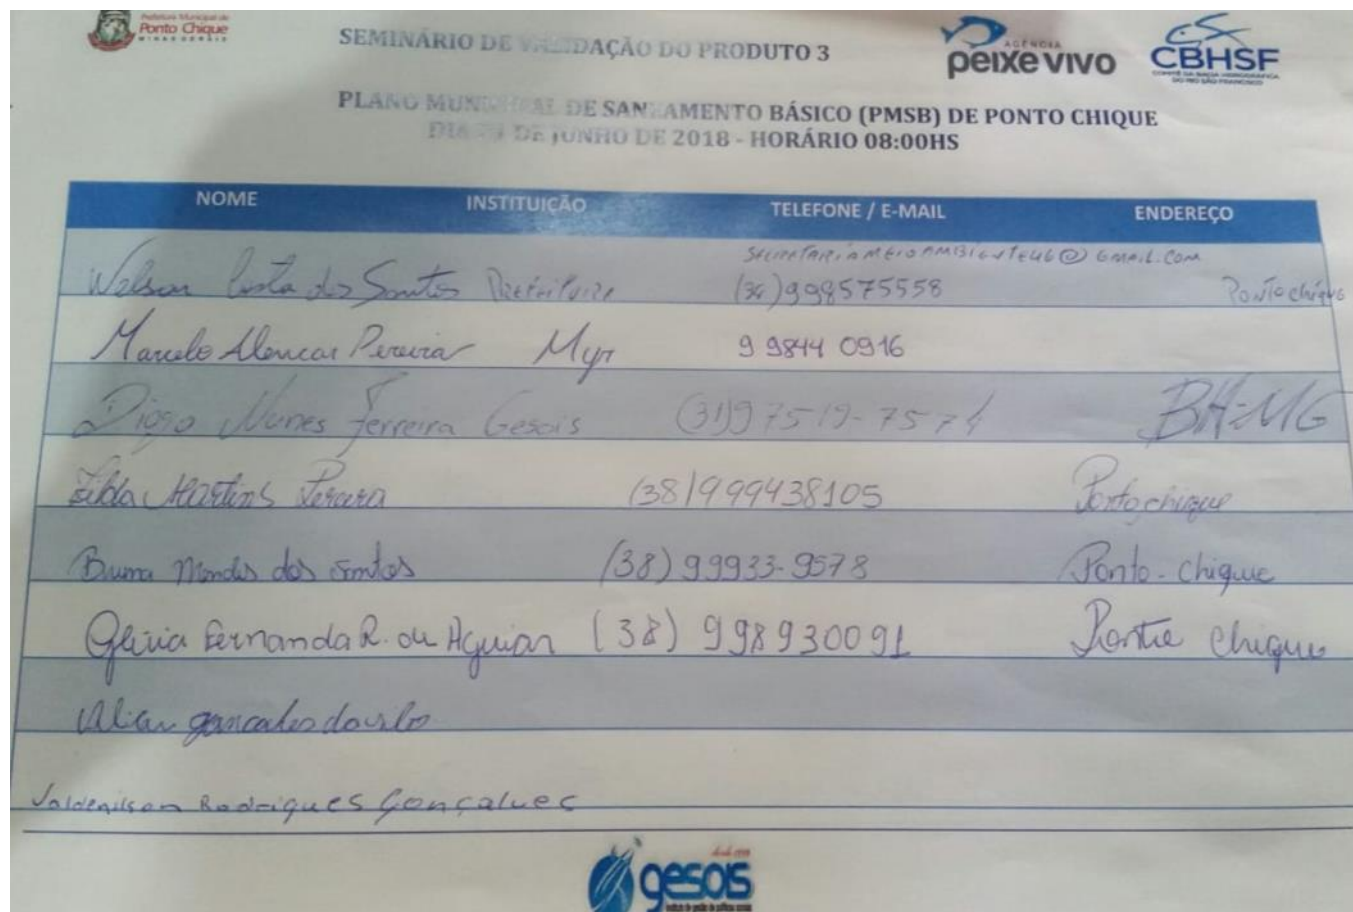 Prefeitura Municipal de
Ponto Chique
MINAS GERAIS
SEMINÁRIO DE VALIDAÇÃO DO PRODUTO 3
AGÊNCIA
peixe vivo
CBHSF
COMITÊ DA BACIA HIDROGRÁFICA
DO RIO SÃO FRANCISCO
PLANO MUNICIPAL DE SANEAMENTO BÁSICO (PMSB) DE PONTO CHIQUE
DIA DE JUNHO DE 2018 - HORÁRIO 08:00HS
NOME INSTITUIÇÃO TELEFONE / E-MAIL ENDEREÇO
SECRETARIAMEIOAMBIENTE46@GMAIL.COM
Welson Costa dos Santos Prefeitura (38)998575558 Ponto chique
Marcelo Alencar Pereira Myr 9 9844 0916
Diogo Nunes Ferreira Gesois (31)97519-7571 BH-MG
Zilda Martins Pereira (38)999438105 Ponto chique
Bruna Mendes dos Santos (38) 99933-9578 Ponto-Chique
Glivia Fernanda R. de Aguiar (38) 998930091 Ponto Chique
goncalves
Valdenilson Rodrigues Gonçalves
gesois